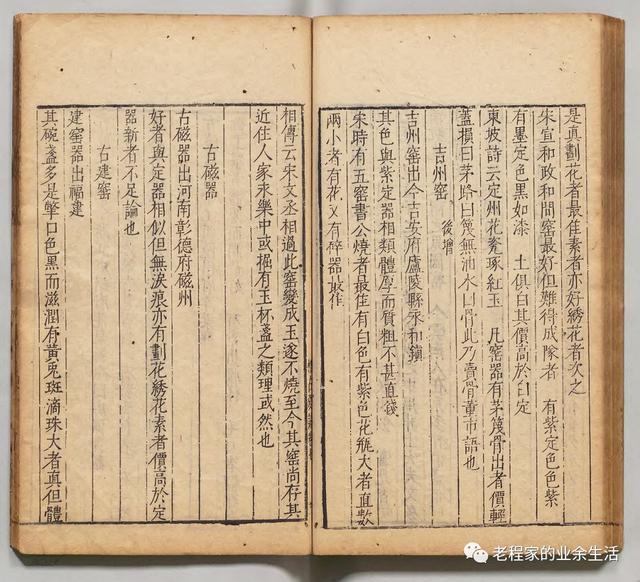 是真劃花者最佳素者亦好綉花者次之
宋宣和政和間窑最好但難得成隊者　有紫定色色紫
有墨定色黒如漆　土俱白其價高於白定
東坡詩云定州花甆琢紅玉　凡窑器有茅篾骨出者價輕
蓋損曰茅路曰篾無油水曰骨此乃賣骨董市語也
吉州窑　後增
吉州窑出今吉安府廬陵縣永和鎮
其色與紫定器相類體厚而質粗不甚直錢
宋時有五窑書公燒者最佳有白色有紫色花瓶大者直數
兩小者有花又有碎器最佳
相傳云宋文丞相過此窑變成玉遂不燒至今其窑尚存其
近住人家永樂中或掘有玉杯盞之類理或然也
古磁器
古磁器出河南彰德府磁州
好者與定器相似但無淚痕亦有劃花綉花素者價高於定
器新者不足論也
古建窑
建窑器出福建
其碗盞多是𢫬口色黒而滋潤有黄兎斑滴珠大者真但體
老程家的业余生活